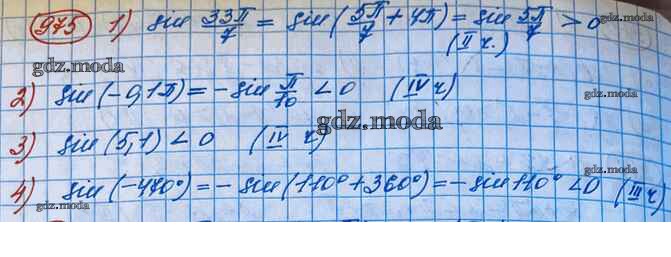 975 1) sin 33π/7 = sin(5π/7 + 4π) = sin 5π/7 > 0
(II ч.)
gdz.moda
2) sin(-0,1π) = -sin π/10 < 0 (IV ч)
gdz.moda
gdz.moda
3) sin(5,1) < 0 (IV ч)
gdz.moda
gdz.moda
4) sin(-470°) = -sin(110° + 360°) = -sin 110° < 0 (III ч)
gdz.moda
gdz.moda